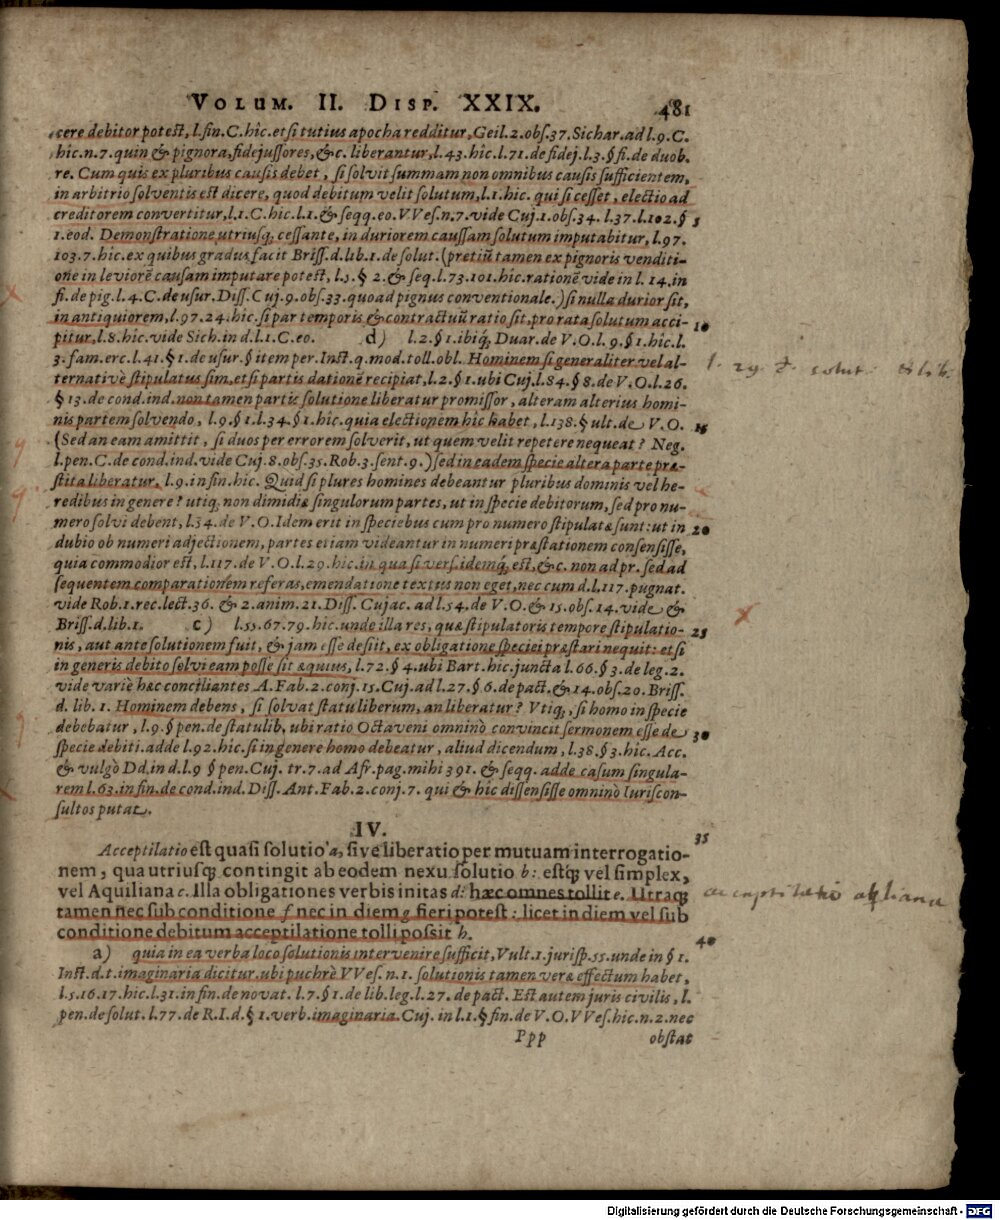 VOLUM. II. DISP. XXIX. 481
cere debitor potest, l.fin.C.hîc.et si tutius apocha redditur, Geil.2.obs.37. Sichar.ad l.9.C.
hîc.n.7. quin & pignora, fidejussores, &c. liberantur, l.43.hîc.l.71.de fidej.l.3.§ fi.de duob.
re. Cum quis ex pluribus causis debet, si solvit summam non omnibus causis sufficientem,
in arbitrio solventis est dicere, quod debitum velit solutum, l.1.hic. qui si cesset, electio ad
creditorem convertitur, l.1.C.hic.l.1.& seqq.eo.VVes.n.7.vide Cuj.1.obs.34. l.37.l.102.§ 5
1.eod. Demonstratione utriusq; cessante, in duriorem caussam solutum imputabitur, l.97.
103.7.hic.ex quibus gradus facit Briss.d.lib.1.de solut.(pretiũ tamen ex pignoris venditi-
one in leviorẽ causam imputare potest, l.5.§ 2.& seq.l.73.101.hîc.rationẽ vide in l.14.in
fi.de pig.l.4.C.de usur.Diss.Cuj.9.obs.33.quoad pignus conventionale.) si nulla durior sit,
in antiquiorem, l.97.24.hîc.si par temporis & contractuũ ratio sit, pro rata solutum acci- 10
pitur, l.8.hîc.vide Sich.in d.l.1.C.eo. d) l.2.§ 1.ibiq; Duar.de V.O.l.9.§ 1.hic.l.
3.fam.erc.l.41.§ 1.de usur.§ item per.Inst.q.mod.toll.obl. Hominem si generaliter vel al-
ternativè stipulatus sim, et si partis dationẽ recipiat, l.2.§ 1.ubi Cuj.l.84.§ 8.de V.O.l.26.
§ 13.de cond.ind.non tamen partis solutione liberatur promissor, alteram alterius homi-
nis partem solvendo, l.9.§ 1.l.34.§ 1.hîc.quia electionem hîc habet, l.138.§ ult.de V.O. 15
(Sed an eam amittit, si duos per errorem solverit, ut quem velit repetere nequeat? Neg.
l.pen.C.de cond.ind.vide Cuj.8.obs.35.Rob.3.sent.9.) sed in eadem specie altera parte præ-
stita liberatur, l.9.in fin.hic. Quid si plures homines debeantur pluribus dominis vel he-
redibus in genere? utiq; non dimidiæ singulorum partes, ut in specie debitorum, sed pro nu-
mero solvi debent, l.54.de V.O.Idem erit in speciebus cum pro numero stipulatæ sunt: ut in 20
dubio ob numeri adjectionem, partes etiam videantur in numeri præstationem consensisse,
quia commodior est, l.117.de V.O.l.29.hic.in qua si vers.idemq; est, &c. non ad pr.sed ad
sequentem comparationem referas, emendatione textus non eget, nec cum d.l.117.pugnat.
vide Rob.1.rec.lect.36. & 2.anim.21.Diss.Cujac.ad l.54.de V.O.& 15.obs.14.vide &
Briss.d.lib.1. c) l.55.67.79.hic.unde illa res, quæ stipulatoris tempore stipulatio- 25
nis, aut ante solutionem fuit, & jam esse desiit, ex obligatione speciei præstari nequit: et si
in generis debito solvi eam posse sit æquius, l.72.§ 4.ubi Bart.hic.juncta l.66.§ 3.de leg.2.
vide variè hæc conciliantes A.Fab.2.conj.15.Cuj.ad l.27.§ 6.de pact.& 14.obs.20.Briss.
d.lib.1. Hominem debens, si solvat statu liberum, an liberatur? Utiq;, si homo in specie
debebatur, l.9.§ pen.de statulib.ubi ratio Octaveni omninò convincit sermonem esse de 30
specie debiti.adde l.92.hic.si in genere homo debeatur, aliud dicendum, l.38.§ 3.hic.Acc.
& vulgò Dd.in d.l.9 § pen.Cuj.tr.7.ad Afr.pag.mihi 391.& seqq. adde casum singula-
rem l.63.in fin.de cond.ind.Diss.Ant.Fab.2.conj.7. qui & hîc dissensisse omninò Iuriscon-
sultos putat.
IV. 35
Acceptilatio est quasi solutio a, sive liberatio per mutuam interrogatio-
nem, qua utriusq; contingit ab eodem nexu solutio b: estq; vel simplex,
vel Aquiliana c. Illa obligationes verbis initas d: hæc omnes tollit e. Utraq;
tamen nec sub conditione f nec in diem g fieri potest: licet in diem vel sub
conditione debitum acceptilatione tolli possit h. 40
a) quia in ea verba loco solutionis intervenire sufficit, Vult.1.jurisp.55.unde in § 1.
Inst.d.t.imaginaria dicitur.ubi puchrè VVes.n.1. solutionis tamen veræ effectum habet,
l.5.16.17.hic.l.31.in fin.de novat. l.7.§ 1.de lib.leg.l.27. de pact. Est autem juris civilis, l.
pen.de solut.l.77.de R.I.d.§ 1.verb.imaginaria.Cuj.in l.1.§ fin.de V.O.VVes.hic.n.2.nec
Ppp obstat
acceptilatio aqliana
Digitalisierung gefördert durch die Deutsche Forschungsgemeinschaft - DFG